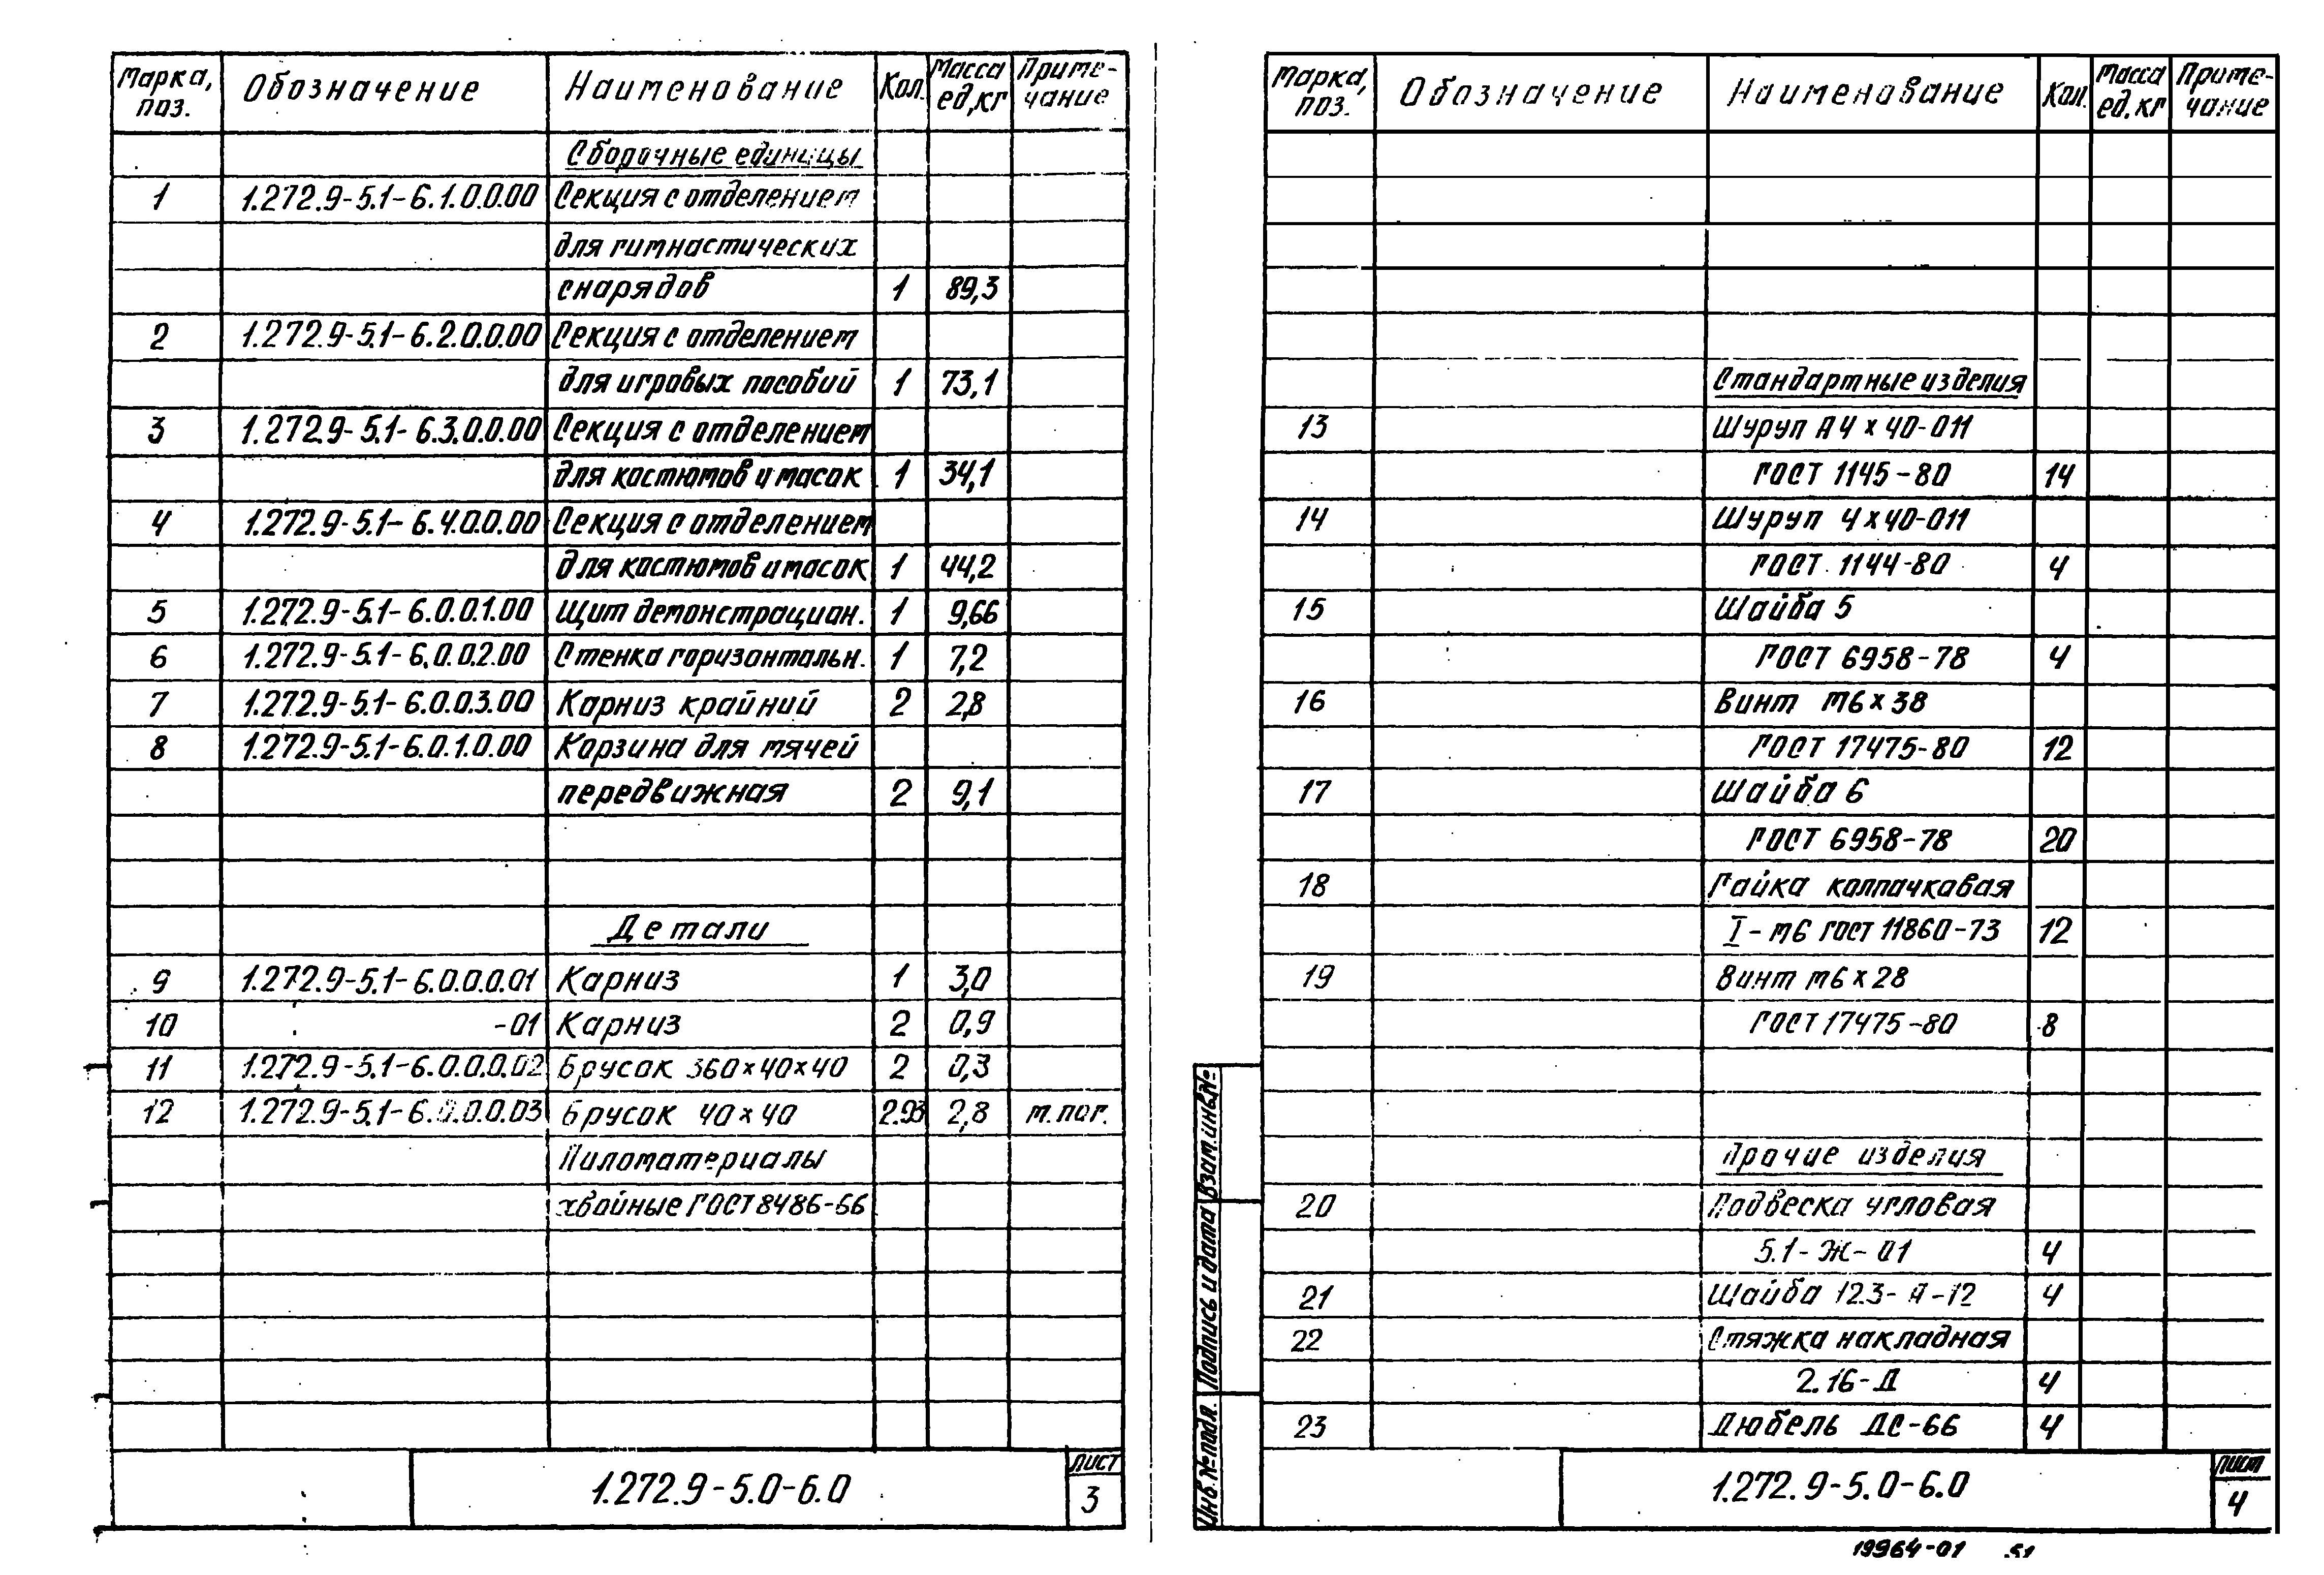 Марка, поз. Обозначение Наименование Кол. Масса ед,кг Приме-чание
Сборочные единицы
1 1.272.9-5.1-6.1.0.0.00 Секция с отделением
для гимнастических
снарядов 1 89,3
2 1.272.9-5.1-6.2.0.0.00 Секция с отделением
для игровых пособий 1 73,1
3 1.272.9-5.1-6.3.0.0.00 Секция с отделением
для костюмов и масок 1 34,1
4 1.272.9-5.1-6.4.0.0.00 Секция с отделением
для костюмов и масок 1 44,2
5 1.272.9-5.1-6.0.0.1.00 Щит демонстрацион. 1 9,66
6 1.272.9-5.1-6.0.0.2.00 Стенка горизонтальн. 1 7,2
7 1.272.9-5.1-6.0.0.3.00 Карниз крайний 2 2,8
8 1.272.9-5.1-6.0.1.0.00 Корзина для мячей
передвижная 2 9,1
Детали
9 1.272.9-5.1-6.0.0.0.01 Карниз 1 3,0
10 -01 Карниз 2 0,9
11 1.272.9-5.1-6.0.0.0.02 Брусок 360×40×40 2 0,3
12 1.272.9-5.1-6.0.0.0.03 Брусок 40×40 2.93 2,8 м.пог.
Пиломатериалы
хвойные ГОСТ 8486-66
1.272.9-5.0-6.0
Лист
3
Марка, поз. Обозначение Наименование Кол. Масса ед.кг Приме-чание
Стандартные изделия
13 Шуруп А4×40-011
ГОСТ 1145-80 14
14 Шуруп 4×40-011
ГОСТ 1144-80 4
15 Шайба 5
ГОСТ 6958-78 4
16 Винт М6×38
ГОСТ 17475-80 12
17 Шайба 6
ГОСТ 6958-78 20
18 Гайка колпачковая
I-М6 ГОСТ 11860-73 12
19 Винт М6×28
ГОСТ 17475-80 8
Прочие изделия
20 Подвеска угловая
5.1-Ж-01 4
21 Шайба 12.3-А-12 4
22 Стяжка накладная
2.16-Д 4
23 Дюбель ДС-66 4
Инв.№подл. Подпись и дата Взам.инв.№
1.272.9-5.0-6.0
Лист
4
19964-01 51